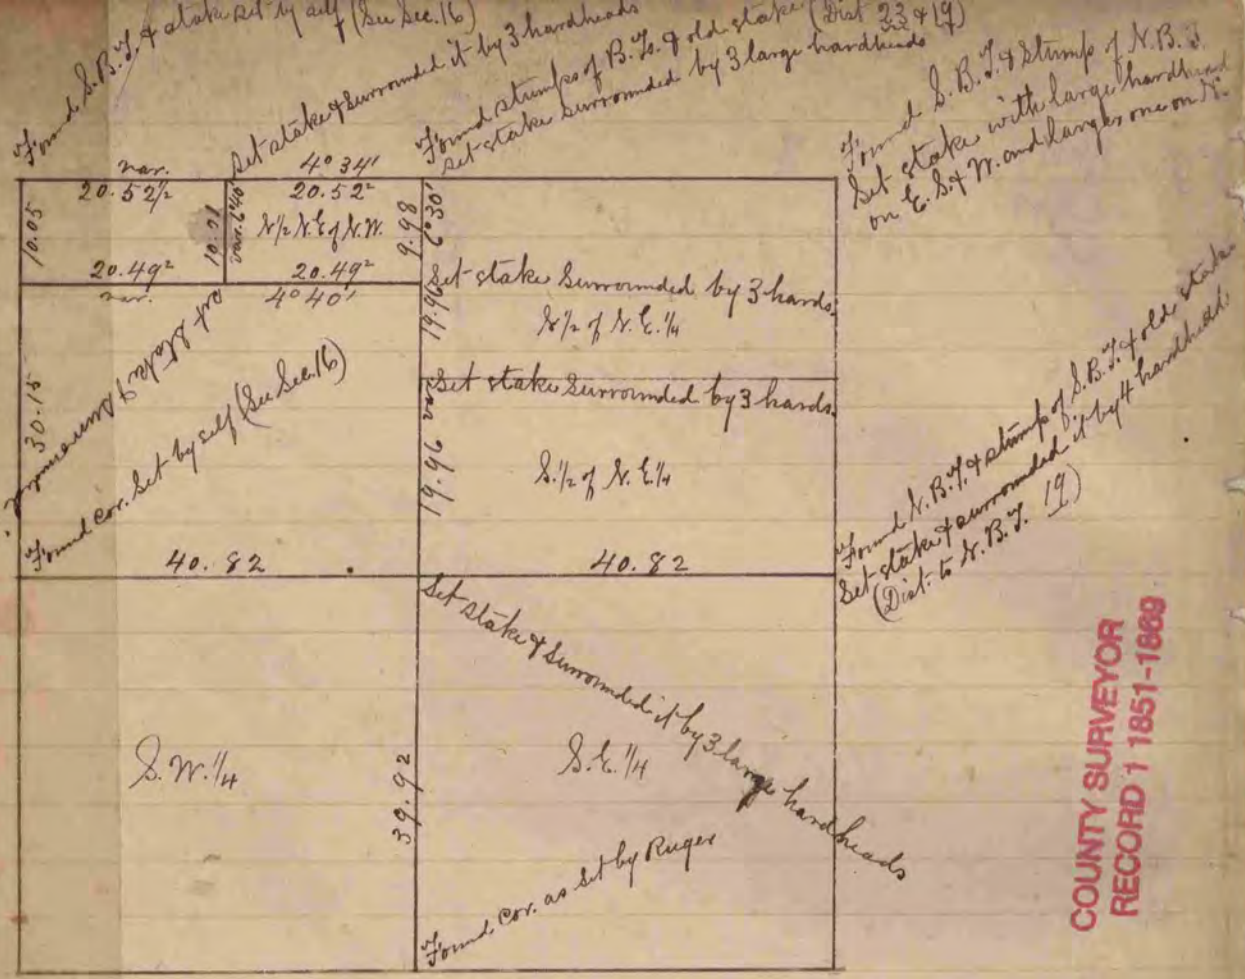 Found S.B.T. & stake set by self (See Sec. 16)
Set stake & surrounded it by 3 hardheads
Found stumps of B.Ts. & old stake (Dist 23 & 19)
Set stake surrounded by 3 large hardheads
Found S.B.T. & Stump of N.B.T.
Set stake with large hardhead
on E. S. & W. and larger one on N.
var. 4° 34'
20.52½ 20.52²
10.05 10.01 var. 6°40' N/2 N.E of N.W. 9.98 6°30'
20.49² 20.49²
var. 4° 40'
Set stake surrounded by 3 hards.
19.96
N/2 of N.E.¼
Set stake & surrounded
Set stake surrounded by 3 hards.
30.15
19.96 var
Found cor. Set by self (See Sec. 16)
S.½ of N.E.¼
Found N.B.T. & stump of S.B.T. & old stake
Set stake & surrounded it by 4 hardheads.
(Dist. to N.B.T. 19)
40.82 40.82
Set stake & surrounded it by 3 large hardheads
S.W.¼
39.92
S.E.¼
Found cor. as set by Ruger
COUNTY SURVEYOR
RECORD 1 1851-1869